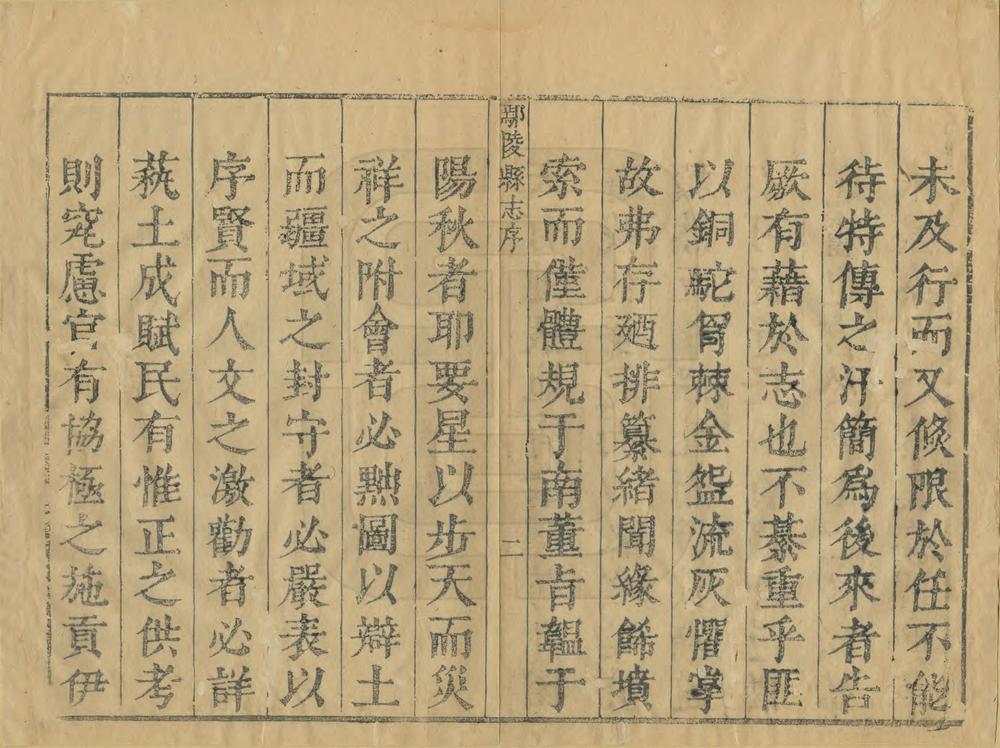 未及行而又倐限於任不能
待特傳之汗簡爲後來者告
厥有藉於志也不綦重乎匪
以銅駝胷棘金盌流灰懼掌
故弗存廼排纂緒聞緣餙墳
索而僅體規于南董旨韞于
鄢陵縣志序
二
陽秋者耶要星以步天而災
祥之附會者必黜圖以辯土
而疆域之封守者必嚴表以
序賢而人文之激勸者必詳
蓺土成賦民有惟正之供考
則究慮官有協極之施貢伊